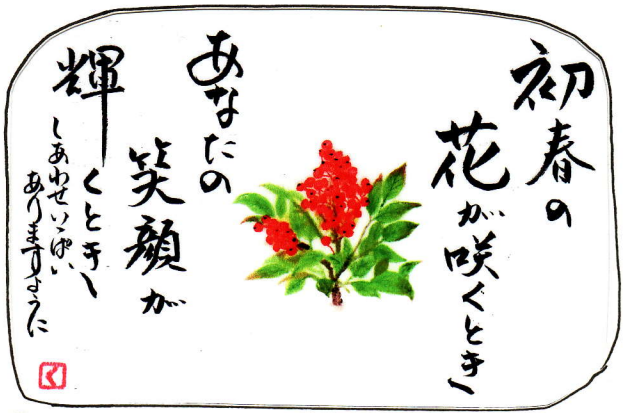 初春の
花が咲くとき
あなたの
笑顔が
輝くとき
しあわせいっぱい
ありますように
く